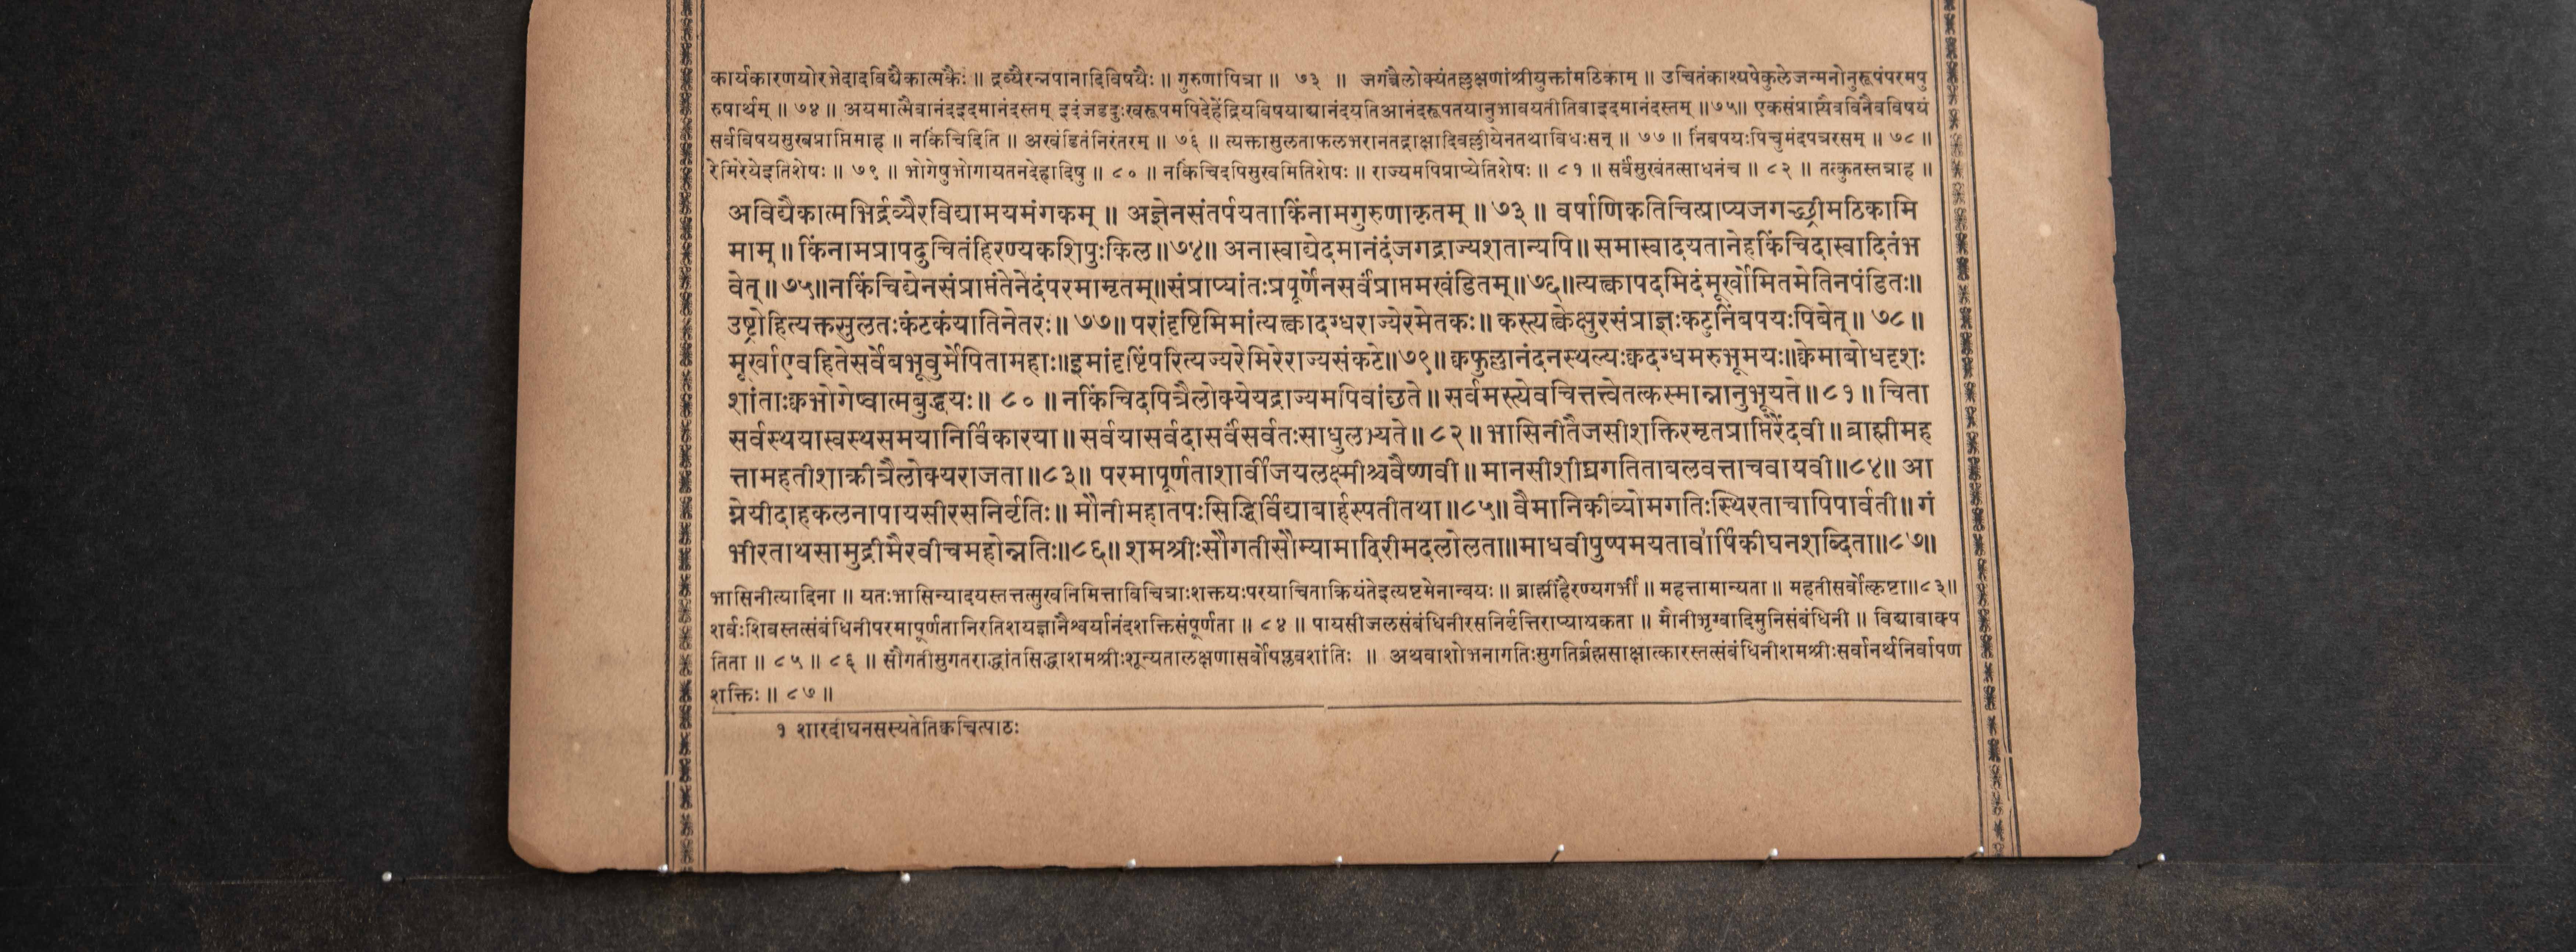 कार्यकारणयोरभेदादविद्यैकात्मकैः ॥ द्रव्यैरन्नपानादिविषयैः ॥ गुरुणापित्रा ॥ ७३ ॥ जगत्त्रैलोक्यंतल्लक्षणांश्रीयुक्तांमठिकाम् ॥ उचितंकाश्यपेकुलेजन्मनोनुरूपंपरमपु
रुषार्थम् ॥ ७४ ॥ अयमात्मैवानंदइदमानंदस्तम् इदंजडदुःखरूपमपिदेहेंद्रियविषयाद्यानंदयतिआनंदरूपतयानुभावयतीतिवाइदमानंदस्तम् ॥७५॥ एकसंप्राप्त्यैवविनैवविषयं
सर्वविषयसुखप्राप्तिमाह ॥ नकिंचिदिति ॥ अखंडितंनिरंतरम् ॥ ७६ ॥ त्यक्तासुलताफलभरानतद्राक्षादिवल्लीयेनतथाविधःसन् ॥ ७७ ॥ निंबपयःपिचुमंदपत्ररसम् ॥ ७८ ॥
रेमिरेयेइतिशेषः ॥ ७९ ॥ भोगेषुभोगायतनदेहादिषु ॥ ८० ॥ नकिंचिदपिसुखमितिशेषः ॥ राज्यमपिप्राप्येतिशेषः ॥ ८१ ॥ सर्वंसुखंतत्साधनंच ॥ ८२ ॥ तत्कुतस्तत्राह ॥
अविद्यैकात्मभिर्द्रव्यैरविद्यामयमंगकम् ॥ अज्ञेनसंतर्पयताकिंनामगुरुणाकृतम् ॥ ७३ ॥ वर्षाणिकतिचित्प्राप्यजगच्छ्रीमठिकामि
माम् ॥ किंनामप्रापदुचितंहिरण्यकशिपुःकिल ॥ ७४ ॥ अनास्वाद्येदमानंदंजगद्राज्यशतान्यपि ॥ समास्वादयतानेहकिंचिदास्वादितंभ
वेत् ॥ ७५ ॥ नकिंचिद्येनसंप्राप्तंतेनेदंपरमामृतम् ॥ संप्राप्यांतःप्रपूर्णेनसर्वंप्राप्तमखंडितम् ॥ ७६ ॥ त्यक्त्वापदमिदंमूर्खोमितमेतिनपंडितः ॥
उष्ट्रोहित्यक्तसुलतःकंटकंयातिनेतरः ॥ ७७ ॥ परांदृष्टिमिमांत्यक्त्वादग्धराज्येरमेतकः ॥ कस्त्यक्त्वेक्षुरसंप्राज्ञःकटुनिंबपयःपिबेत् ॥ ७८ ॥
मूर्खाएवहितेसर्वेबभूवुर्मेपितामहाः ॥ इमांदृष्टिंपरित्यज्यरेमिरेराज्यसंकटे ॥ ७९ ॥ क्वफुल्लानंदनस्थल्यःक्वदग्धमरुभूमयः ॥ क्वेमाबोधदृशः
शांताःक्वभोगेष्वात्मबुद्धयः ॥ ८० ॥ नकिंचिदपित्रैलोक्येयद्राज्यमपिवांछते ॥ सर्वमस्त्येवचित्तत्त्वेतत्कस्मान्नानुभूयते ॥ ८१ ॥ चिता
सर्वस्थयास्वस्थसमयानिर्विकारया ॥ सर्वयासर्वदासर्वंसर्वतःसाधुलभ्यते ॥ ८२ ॥ भासिनीतैजसीशक्तिरमृतप्राप्तिरैंदवी ॥ ब्राह्मीमह
त्तामहतीशाक्रीत्रैलोक्यराजता ॥ ८३ ॥ परमापूर्णताशार्वीजयलक्ष्मीश्चवैष्णवी ॥ मानसीशीघ्रगतिताबलवत्ताचवायवी ॥ ८४ ॥ आ
ग्नेयीदाहकलनापायसीरसनिर्वृतिः ॥ मौनीमहातपःसिद्धिर्विद्याबार्हस्पतीतथा ॥ ८५ ॥ वैमानिकीव्योमगतिःस्थिरताचापिपार्वती ॥ गं
भीरताथसामुद्रीमैरवीचमहोन्नतिः ॥ ८६ ॥ शमश्रीःसौगतीसौम्यामादिरीमदलोलता ॥ माधवीपुष्पमयतावा१र्षिकीघनशब्दिता ॥ ८७ ॥
भासिनीत्यादिना ॥ यतःभासिन्यादयस्तत्तत्सुखनिमित्ताविचित्राःशक्तयःपरयाचिताक्रियंतेइत्यष्टमेनान्वयः ॥ ब्राह्मीहैरण्यगर्भी ॥ महत्तामान्यता ॥ महतीसर्वोत्कृष्टा ॥ ८३ ॥
शर्वःशिवस्तत्संबंधिनीपरमापूर्णतानिरतिशयज्ञानैश्वर्यानंदशक्तिसंपूर्णता ॥ ८४ ॥ पायसीजलसंबंधिनीरसनिर्वृत्तिराप्यायकता ॥ मौनीभृग्वादिमुनिसंबंधिनी ॥ विद्यावाक्प
तिता ॥ ८५ ॥ ८६ ॥ सौगतीसुगतराद्धांतसिद्धाशमश्रीःशून्यतालक्षणासर्वोपप्लवशांतिः ॥ अथवाशोभनागतिःसुगतिर्ब्रह्मसाक्षात्कारस्तत्संबंधिनीशमश्रीःसर्वानर्थनिर्वापण
शक्तिः ॥ ८७ ॥
१ शारदीघनसस्यतेतिक्वचित्पाठः